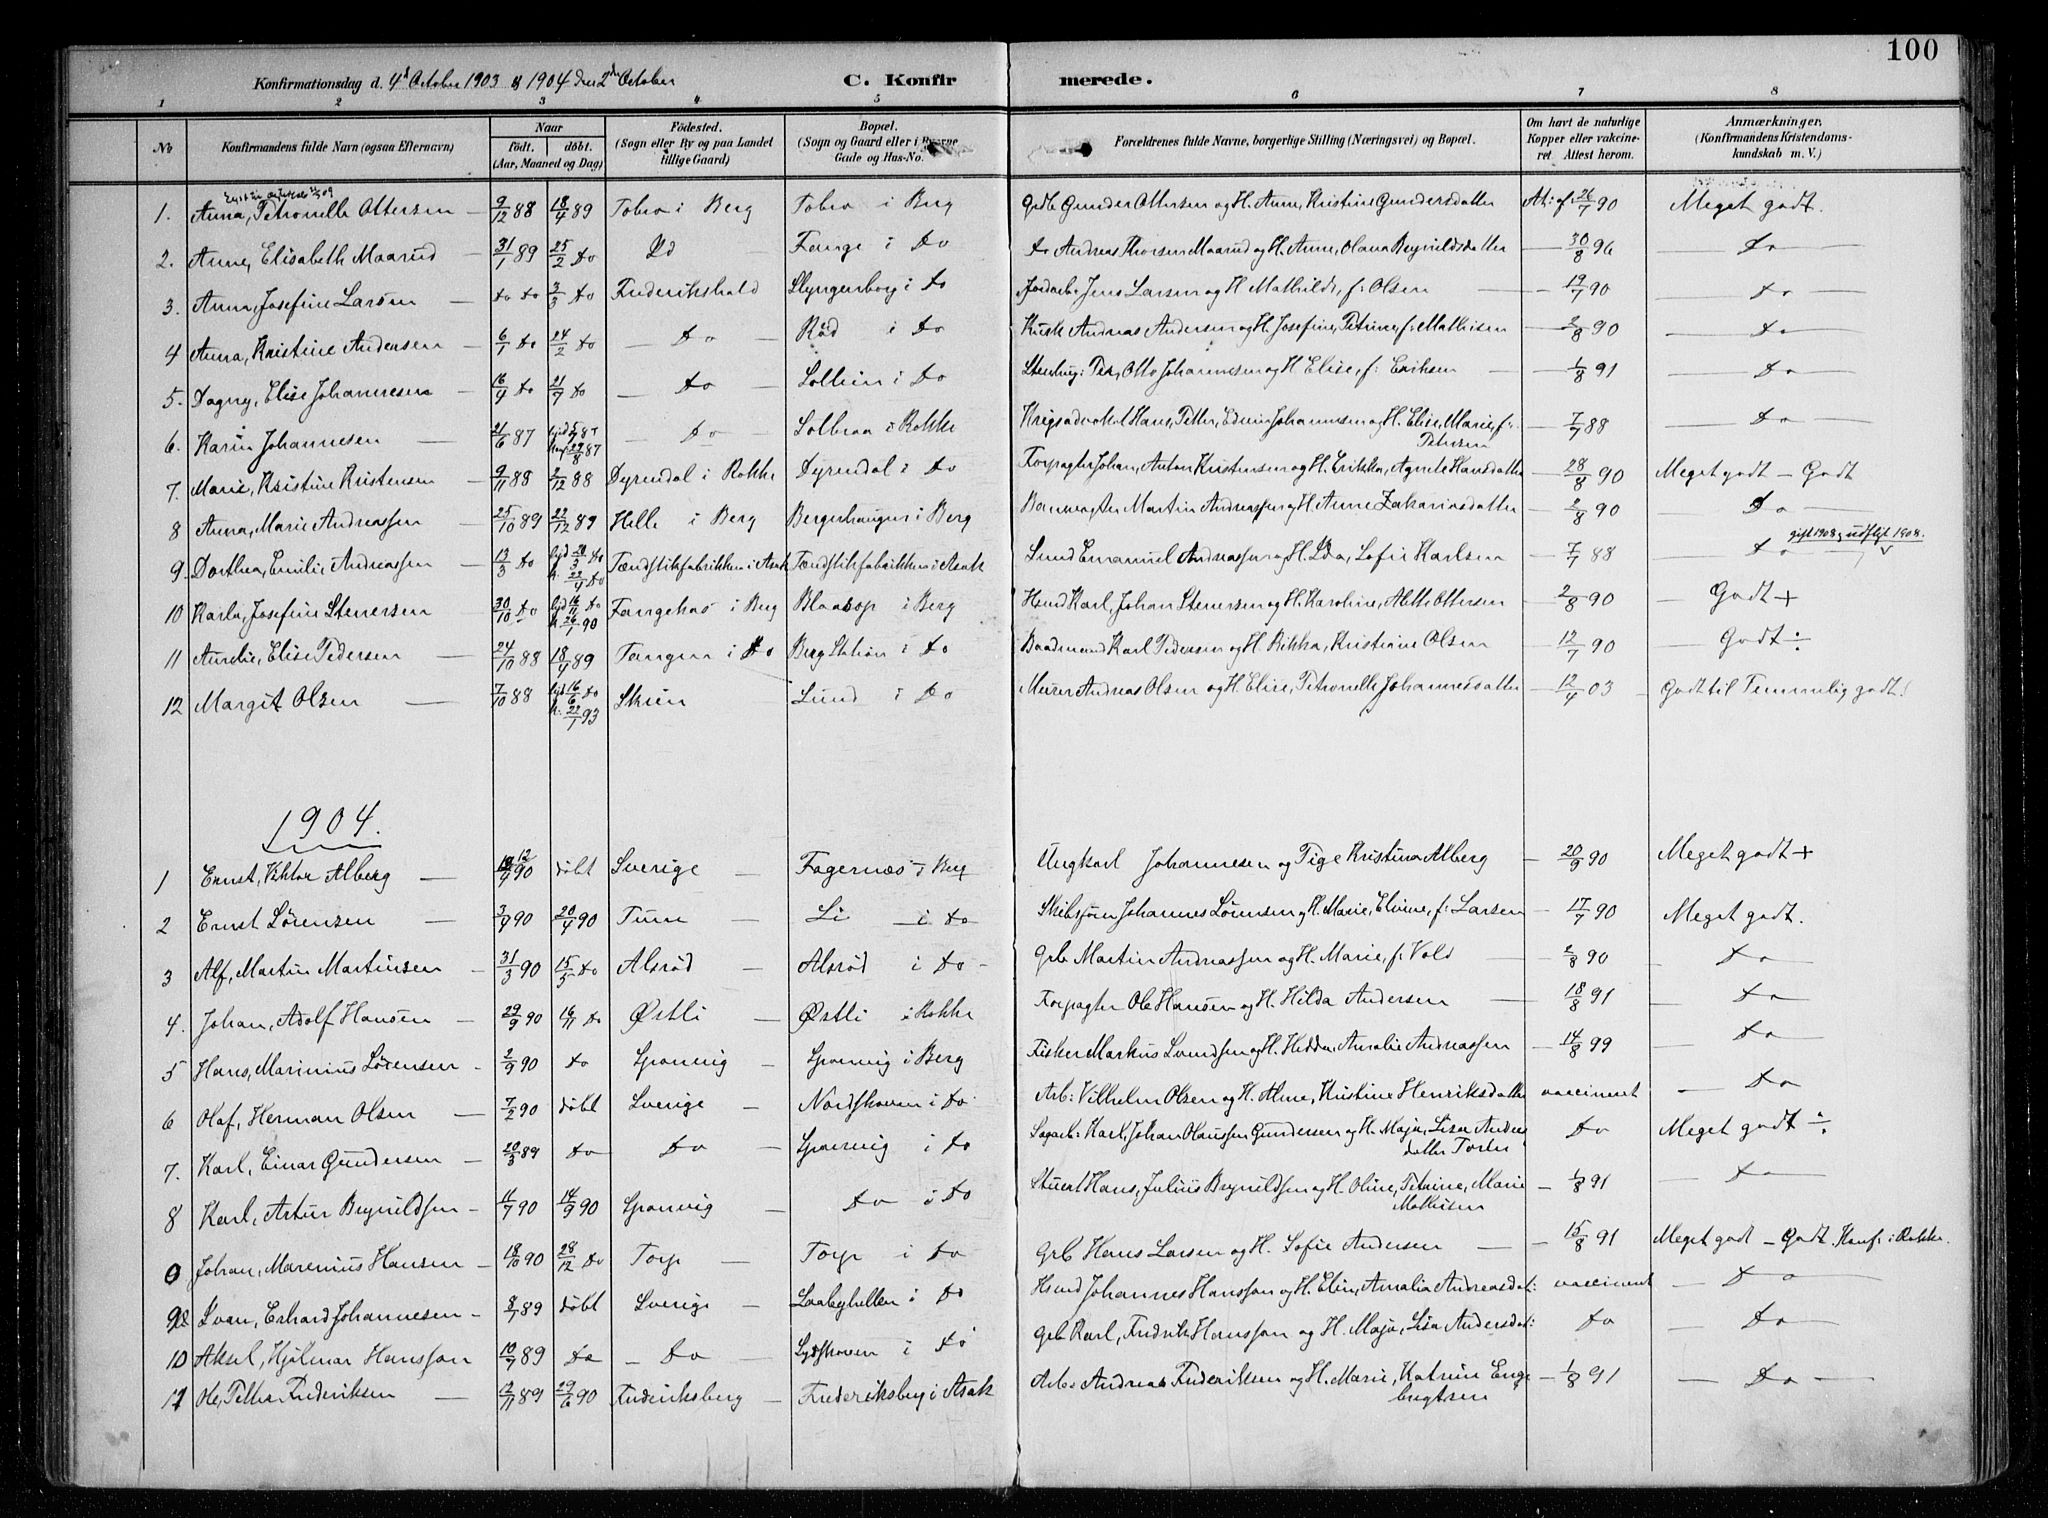 100
Konfirmationsdag d. 4de October 1903 og 1904 den 2den October C. Konfirmerede.
1 2 3 4 5 6 7 8
No Konfirmandens fulde Navn (ogsaa Efternavn) Naar født. døbt. (Aar, Maaned og Dag) Fødested. (Sogn eller By og paa Landet tillige Gaard) Bopæl. (Sogn og Gaard eller i Byerne Gade og Hus-No. Forældrenes fulde Navne, borgerlige Stilling (Næringsvei) og Bopæl. Om havt de naturlige Kopper eller vakcineret Attest herom. Anmærkninger. (Konfirmandens Kristendomskundskab m. V.)
1. Anna, Petronelle Ottersen — 9/12 88 18/4 89 Tobro i Berg Tobro i Berg Grb Gunder Ottersen og H. Anne, Kristine Gundersdatter At: af: 26/7 90 Meget godt.
2. Anne, Elisabeth Maarud — 31/1 89 25/2 Do Id — Fange i Do Do Andreas Thorsen Maarud og H. Anne, Olana Brynildsdatter — 30/8 96 — Do —
3. Anna, Josefine Larsen — Do Do 3/3 Do Frederikshald Slyngenborg i Do Jordarb: Jens Larsen og H. Mathilde, f: Olsen — — 19/7 90 — Do —
4 Anna, Kristine Andersen — 6/1 Do 24/2 Do — Do — Rød i Do Kusk Andreas Andersen og H. Josefine, Petrine, f: Mathisen — 2/8 90 — Do —
5. Dagny, Elise Johannesen — 16/4 Do 21/7 Do — Do — Solliein i Do Stenhug: Per, Otto Johannesen og H. Elise, f: Eriksen — — 1/8 91 — Do —
6. Karin Johannesen — 21/6 87 hjd 5/7 87 konf 29/8 87 — Do Solbraa i Rokke Krigsadvokat Hans, Petter, Edvin Johannesen og H. Elise, Marie, f: Petersen — 7/7 88 — Do —
7. Marie, Kristine Kristensen 9/11 88 2/12 88 Dyrendal i Rokke Dyrendal i Do Forpagter Johan, Anton Kristensen og H. Erikka, Agnete Hansdatter — 28/8 90 Meget godt — Godt
8 Anna, Marie Andreassen 25/10 89 22/12 89 Helle i Berg Bergerhaugen i Berg Banevogter Martin Andreassen og H. Anne Zakariasdatter — 2/8 90 — Do —
9. Dorthea, Emilie Andreassen 13/3 Do hjd 20/3 Do k. 22/4 Do Tændstikfabrikken i Asak Tændstikfabrikken i Asak Smed Emanuel Andreassen og H. Ida, Sofie Karlsen — 7/7 88 — Do — gift 1908, udflyt 1908.
10 Karla, Josefine Stenersen 30/10 Do hjd 16/11 Do k. 26/1 90 Fangekas i Berg Blaasop i Berg Hmd Karl, Johan Stenersen og H. Karoline, Alette Ottersen — 2/8 90 — Godt +
11 Aurelie, Elise Pedersen 24/10 88 18/4 89 Tangen i Do Berg Station i Do Baadmand Karl Pedersen og H. Rikka, Kristine Olsen — 12/7 90 — Godt ÷
12 Margit Olsen — 7/10 88 hjd 16/6 Do k: 22/1 93 Skien Lund i Do Murer Andreas Olsen og H. Elise, Petronelle Johannesdatter — 12/4 03 — Godt til Temmelig godt!
1904.
1 Ernst, Viktor Alberg — 12/7 90 døbt Sverige — Fagernæs i Berg Ungkarl Johannesen og Pige Kristina Alberg — 20/9 90 Meget godt +
2 Ernst Sørensen — 3/4 90 20/4 90 Tune — Li — i Do Skibstøm Johannes Sørensen og H. Marie, Elvine, f: Larsen — 17/7 90 Meget godt.
3 Alf, Martin Martinsen — 31/3 90 15/5 Do Alsrød — Alsrød i Do - Grb Martin Andreassen og H. Marie, f: Vold — 2/8 90 — Do —
4. Johan, Adolf Hansen — 29/9 90 16/11 Do Østli — Østli i Rokke Forpagter Ole Hansen og H. Hilda Andersen — — 18/8 91 — Do —
5 Hans, Marinius Sørensen - 2/9 90 Do Sponvig — Sponvig i Berg Fisker Markus Svendsen og H. Hedda, Amalie Andreassen — 14/8 99 — Do —
6 Olaf, Herman Olsen — 7/2 90 døbt Sverige — Nordskoven i Do Arb: Vilhelm Olsen og H. Alme, Kristine Henriksdatter vaccineret — Do
7. Karl, Einar Gundersen — 20/3 89 Do Do — Sponvig i Do Sagarb: Karl, Johan Olaussen Gundersen og H. Maja, Lisa Andersdatter Toren Do Meget godt ÷
8 Karl, Artur Brynildsen - 11/7 90 14/9 90 Sponvig Do i Do Stuert Hans, Julius Brynildsen og H. Oline, Petrine, Marie Mathisen — 1/8 91 — Do —
9 Johan, Marenius Hansen — 18/10 90 28/12 Do Torp — Torp i Do Grb Hans Larsen og H. Sofie Andersen — — 15/8 91 Meget godt — Godt. Konf. i Rokke.
9b Ivan, Erhard Johannesen — 8/7 89 døbt Sverige — Laabyhellen i Do Hmd Johannes Hansson og H. Elin, Amalia Andreasdat: vaccineret — Do —
10 Aksel, Hjalmar Hansson 10/7 89 Do — Do — Lysskoven i Do Grb Karl, Fredrik Hansson og H. Maja, Lisa Andersdat: Do — Do —
11 Ole, Petter Frederiksen — 12/11 89 29/6 90 Frederiksberg — Frederiksberg i Asak Arb: Andreas Frederiksen og H. Marie, Katrine Engebregtsen — 1/8 91 — Do —